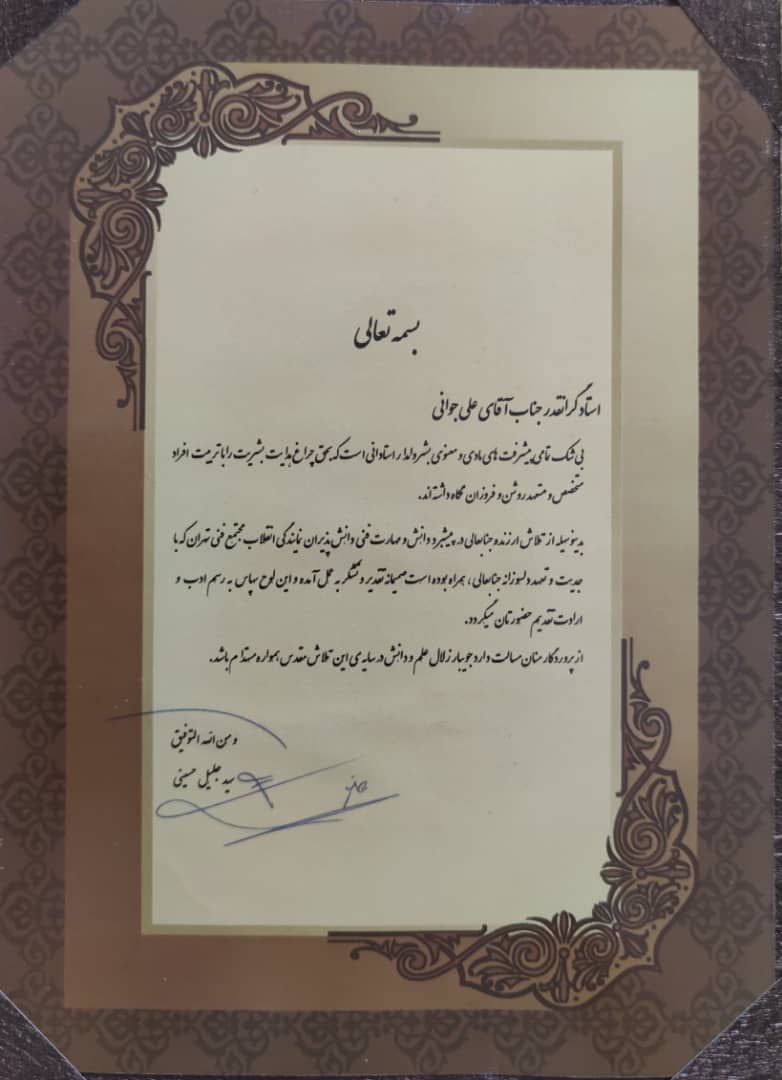 بسمه تعالی
استاد گرانقدر جناب آقای علی جوانی
بی شک تمامی پیشرفت های مادی و معنوی بشر ولدار استادانی است که بحق چراغ هدایت بشریت را با تربیت افراد
متخصص و متعهد روشن و فروزان نگاه داشته اند.
بدینوسیله از تلاش ارزنده جنابعالی در پیشبرد دانش و مهارت فنی دانش پذیران نمایندگی انقلاب مجتمع فنی تهران که با
جدیت و تعهد دلسوزانه جنابعالی ، همراه بوده است صمیمانه تقدیر و تشکر به عمل آمده و این لوح سپاس به رسم ادب و
ارادت تقدیم حضورتان میگردد.
از پروردگار منان مسالت دارد جویبار زلال علم و دانش در سایه ی این تلاش مقدس همواره مستدام باشد.
و من الله التوفیق
سید جلیل حسینی